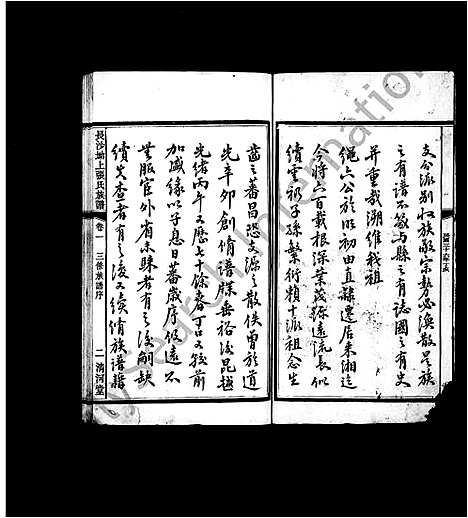 支分派別收族敬宗勢必渙散是族
之有譜不啻與縣之有誌國之有史
并重哉溯維我祖
繩六公於明初由直隸遷居来湘迄
今將六百載根深葉茂源遠流長似
續雲礽子孫繁衍賴十派祖念生
齒之蕃昌恐文漏之散佚曽於道
光辛卯創脩譜牒垂裕後昆越
光緒丙午又歷七十餘春丁口又較前
加盛緣以子息日蕃歲序假遠不
無服官外省未歸者有之後嗣缺
續失查者有之後又續脩族譜籍
長沙坳上張氏族譜
卷一 三修族譜序
二 清河堂
MySearch International